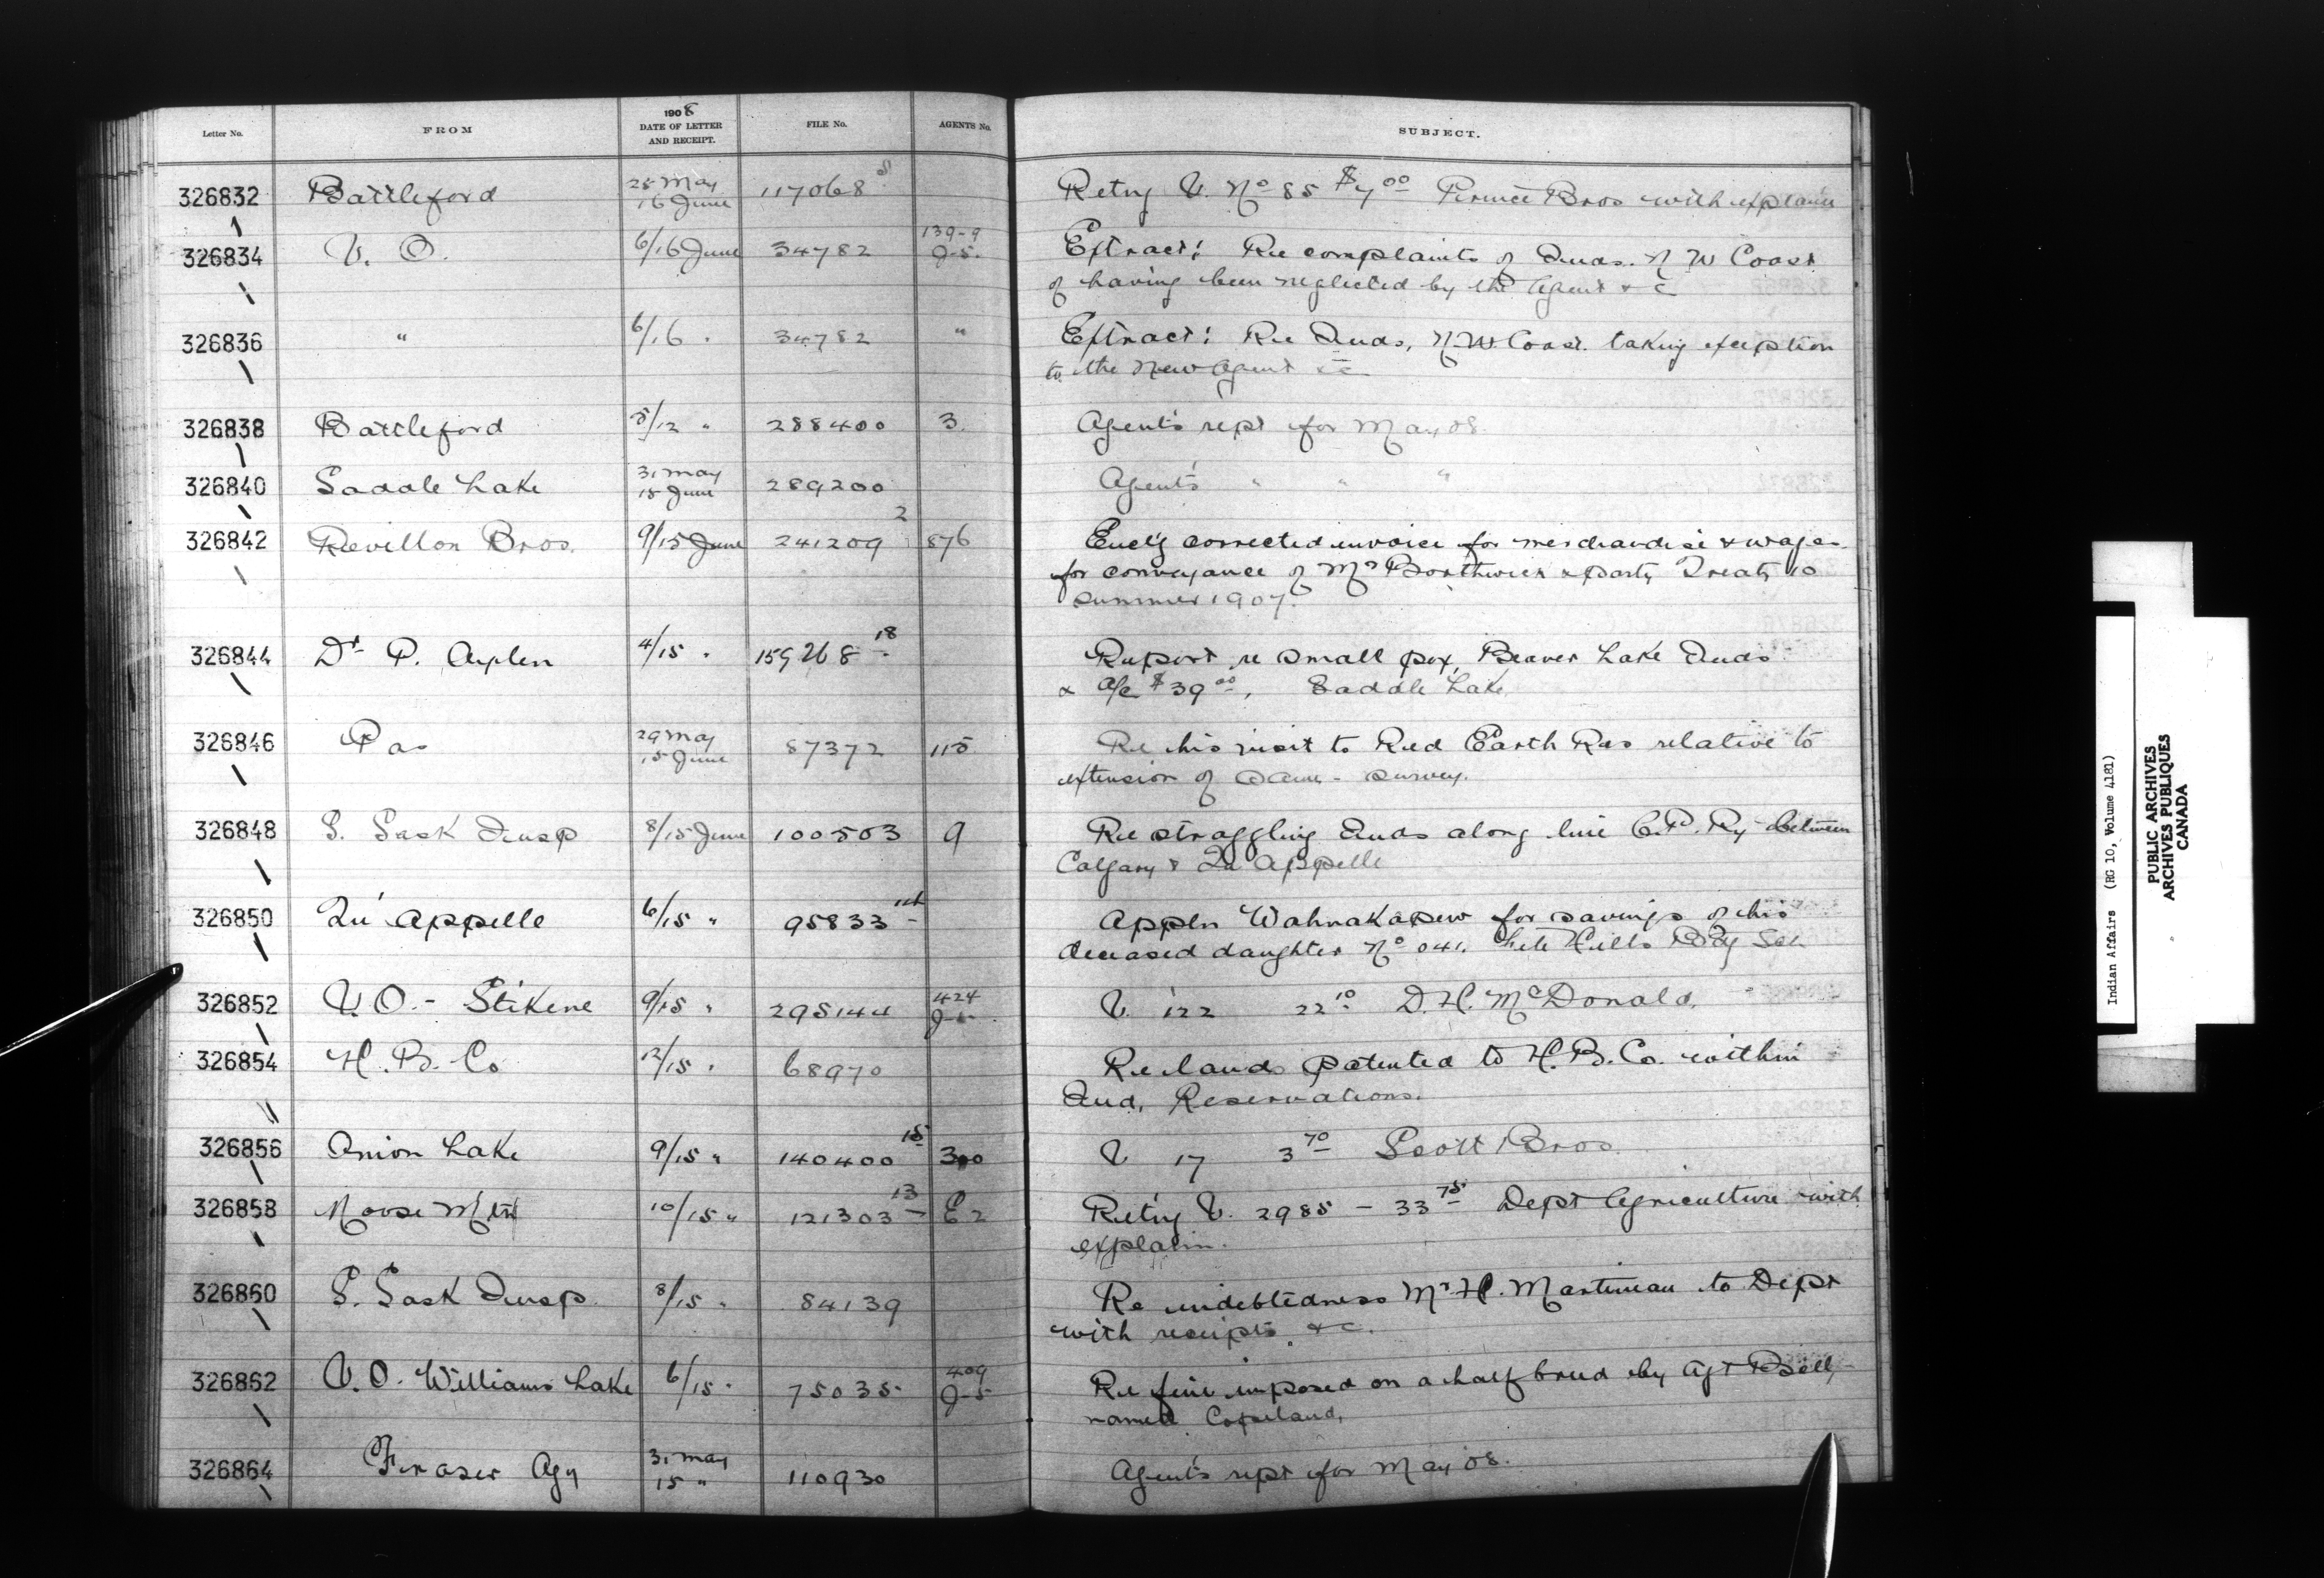 Letter No. FROM 1908 DATE OF LETTER AND RECEIPT. FILE No. AGENTS No. SUBJECT.
326832 Battleford 28 May 16 June 117068 Retng V. No 85 $7.00 Bros with explan'n
326834 V. O. 6/16 June 34782 139-9 J-5. Extract: Re complaints of Inds. N W Coast
of having been neglected by the Agent & c
326836 " 6/16 " 34782 " Extract: Re Inds, N.W. Coast. taking exception
to the New Agent &c
326838 Battleford 5/12 " 288400 3. Agent's rept for May 08.
326840 Saddle Lake 31 May 15 June 289200 Agent's " " "
326842 Revillon Bros. 9/15 June 241209 2 876 Encl'g corrected invoice for merchandise & wages
for conveyance of Mr Borthwick & party Treaty 10
summer 1907.
326844 Dr P. Aylen 4/15 " 159268 18 Report re small pox, Beaver Lake Inds
& a/c $39.00, Saddle Lake
326846 Pas 29 May 15 June 87372 115 Re his visit to Red Earth Res relative to
extension of same - survey.
326848 S. Sask Insp 8/15 June 100503 9 Re straggling Inds along line C.P. Ry between
Calgary & Qu'Appelle
326850 Qu'Appelle 6/15 " 95833 Appln Wahnakapew for savings of his
deceased daughter No 041. File Hills Bdg Sch
326852 V. O. - Stikene 9/15 " 295144 424 J-5. V. 122 22.10 D. H. McDonald.
326854 H. B. Co 12/15 " 68970 Re lands patented to H. B. Co. within
Ind. Reservations.
326856 Onion Lake 9/15 " 140400 15 300 V 17 3.70 Scott Bros.
326858 Moose Mtn 10/15 " 121303 13 E2 Retng V. 2985 - 33.75 Dept Agriculture with
explan'n.
326860 S. Sask Insp. 8/15 " 84139 Re indebtedness Mr H. Martineau to Dept
with receipts &c.
326862 V. O. Williams Lake 6/15 " 75035 409 J-5 Re fine imposed on a half breed by Agt Bell,
named Copeland.
326864 Fraser Agy 31 May 15 " 110930 Agent's rept for May 08.
Indian Affairs (RG 10, Volume 4181)
PUBLIC ARCHIVES
ARCHIVES PUBLIQUES
CANADA